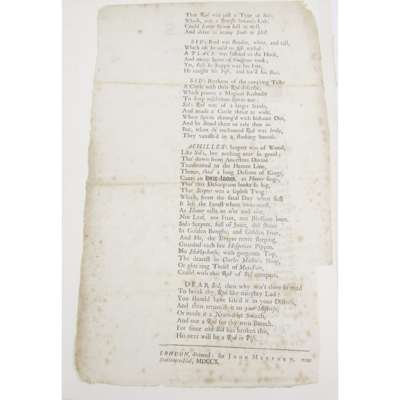 That Rod was just a Type of his;
Which, as a Sword
Could Lame him kill as well,
And drive as many Souls to Hell.
SID's Rod was slender, white, and tall,
Which oft he us'd to fish withal:
A PLACE was fasten'd to the Hook,
And many Score of Gudgeons took;
Yet, still so happy was his Fate,
He caught his Fish, and sav'd his Bait.
SID's Brethren of the conj'ring Tribe
A Circle with their Rod describe,
Which proves a Magical Redoubt
To keep mischievous Spirits out:
Sid's Rod was of a larger Stride,
And made a Circle thrice as wide,
Where Spirits throng'd with hideous Din,
And he stood there to take them in:
But, when th' enchanted Rod was broke,
They vanish'd in a stinking Smoak.
ACHILLES's Scepter was of Wood,
Like Sid's, but nothing near so good;
Tho' down from Ancestors Divine
Transmitted to the Heroe's Line,
Thence, thro' a long Descent of Kings,
Came an HEIR-LOOM, as Homer sings,
Tho' this Description looks so big,
That Scepter was a sapless Twig:
Which, from the fatal Day when first
It left the Forest where 'twas nurst,
As Homer tells us o'er and o'er,
Nor Leaf, nor Fruit, nor Blossom bore.
Sid's Scepter, full of Juice, did shoot
In Golden Boughs, and Golden Fruit,
And He, the Dragon never sleeping,
Guarded each fair Hesperian Pippin.
No Hobby-horse, with gorgeous Top,
The dearest in Charles Mather's Shop,
Or glitt'ring Tinsel of May-Fair,
Could with this Rod of Sid compare.
DEAR Sid, then why wer't thou so mad
To break thy Rod like naughty Lad?
You should have kiss'd it in your Distress,
And then return'd it to your Mistress;
Or made it a Newmarket Switch,
And not a Rod for thy own Breech.
For since old Sid has broken this,
His next will be a Rod in Piss.
LONDON, Printed: for JOHN MORPHEW, near
Stationers-Hall, MDCCX.